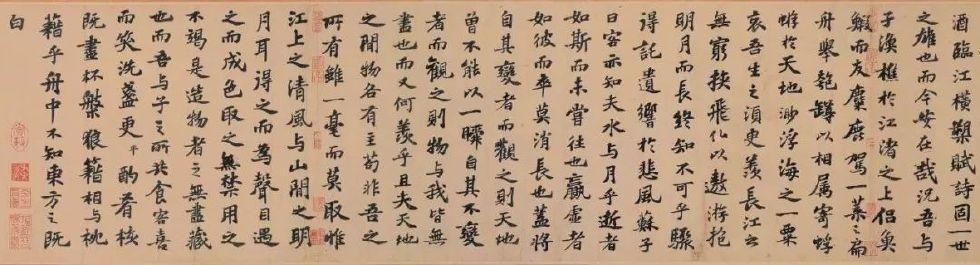 酒臨江橫槊賦詩固一世
之雄也而今安在哉況吾与
子漁樵於江渚之上侶魚
鰕而友麋鹿駕一葉之扁
舟舉匏罇以相属寄蜉
蝣於天地渺浮海之一粟
哀吾生之須臾羨長江之
無窮挾飛仙以遨游抱
明月而長終知不可乎驟
得託遺響於悲風蘇子
曰客亦知夫水与月乎逝者
如斯而未嘗往也贏虛者
如彼而卒莫消長也蓋將
自其變者而觀之則天地
曾不能以一瞬自其不變
者而觀之則物与我皆無
盡也而又何羨乎且夫天地
之間物各有主苟非吾之
所有雖一毫而莫取惟
江上之清風与山間之明
月耳得之而為聲目遇
之而成色取之無禁用之
不竭是造物者之無盡藏
也而吾与子之所共食客喜
而笑洗盞更平酌肴核
既盡杯槃狼籍相与枕
藉乎舟中不知東方之既
白